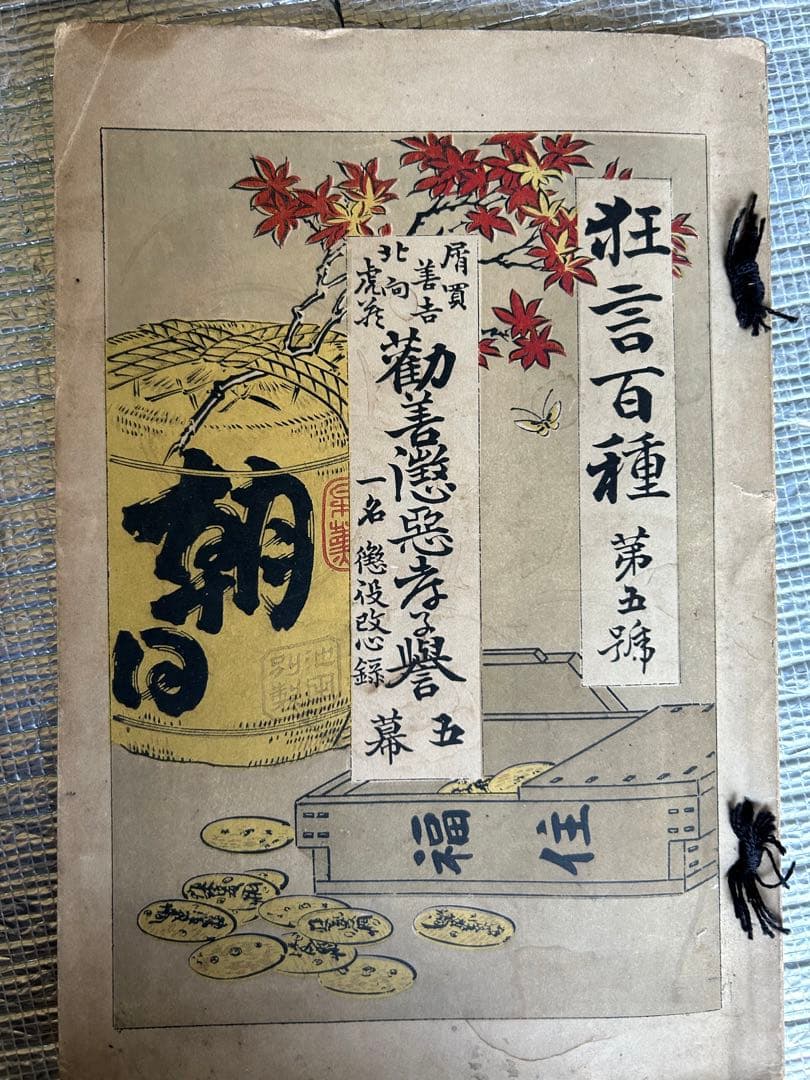 狂言百種 第五號
屑買 善吉
北向 虎蔵
勸善懲惡孝子譽
一名 懲役改心録
五幕
朝日
池田
別製
住福